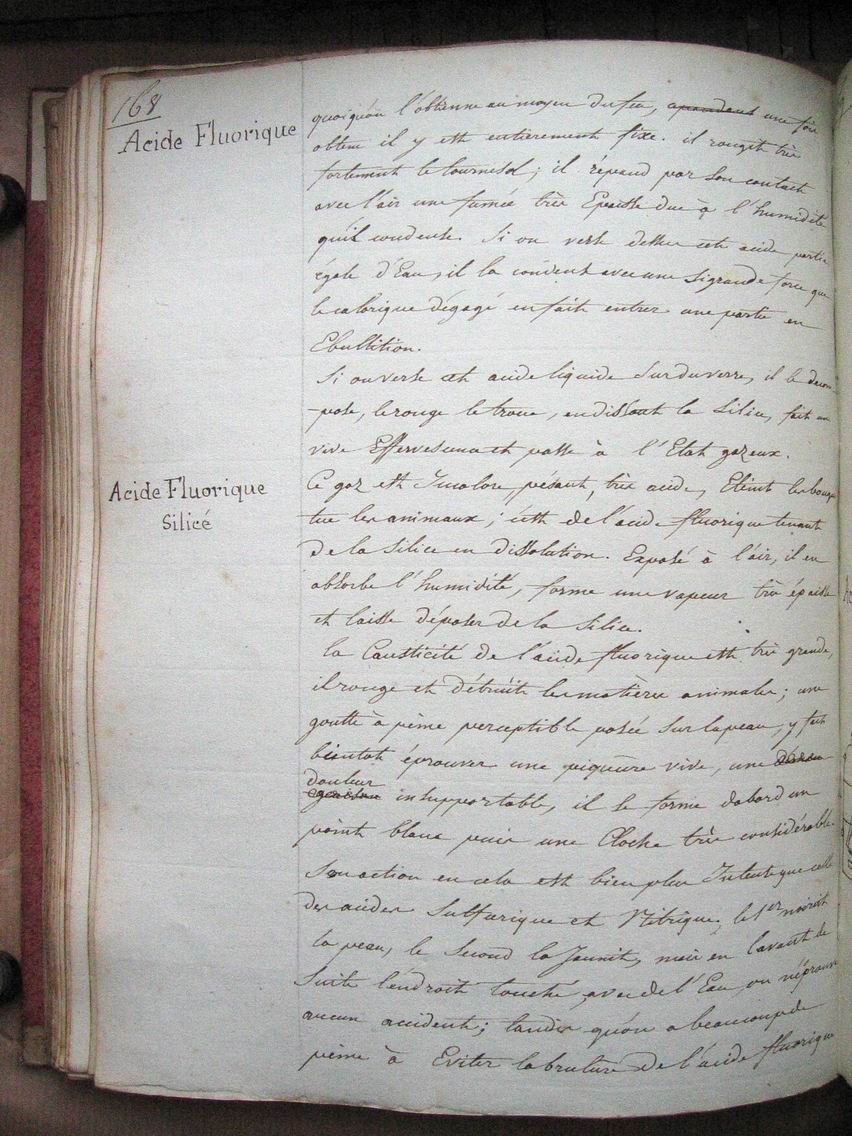 168
Acide Fluorique
quoiqu'on l'obtienne au moyen du feu, une fois
obtenu il y est entierement fixe. il rougit très
fortement le tournesol; il répand par son contact
avec l'air une fumée très Epaisse due à l'humidité
qu'il condense. Si on verse dessus cet acide partie
égale d'Eau, il la condense avec une si grande force que
le calorique dégagé en fait entrer une partie en
Ebullition.
Si on verse cet acide liquide sur du verre, il le décom
-pose, le ronge le troue, en dissout la Silice, fait une
vive Effervescence et passe à l'Etat gazeux.
Acide Fluorique
Silicé
Ce gaz est Incolore, pésant, très acide, Eteint les bougies
tue les animaux; c'est de l'acide fluorique tenant
de la Silice en dissolution. Exposé à l'air, il en
absorbe l'humidité, forme une vapeur très épaisse
et laisse déposer de la Silice.
la Causticité de l'acide fluorique est très grande,
il ronge et détruit les matières animales; une
goutte à peine perceptible posée sur la peau, y fait
bientot éprouver une piqûure vive, une
douleur
insupportable, il se forme dabord un
point blanc puis une Cloche très considérable.
Son action en cela est bien plus Intense que celle
des acides Sulfurique et Nitrique, le 1er noircit
la peau, le Second la Jaunit, mais en lavant de
Suite l'endroit touché, avec de l'Eau, on n'éprouve
aucun accidents; tandis qu'on a beaucoup de
peine à Eviter la brulure de l'acide fluorique